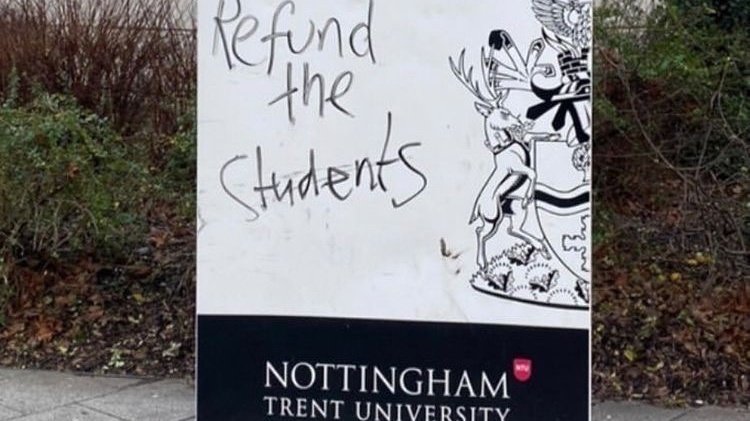 Refund
the
students
NTU
NOTTINGHAM
TRENT UNIVERSITY